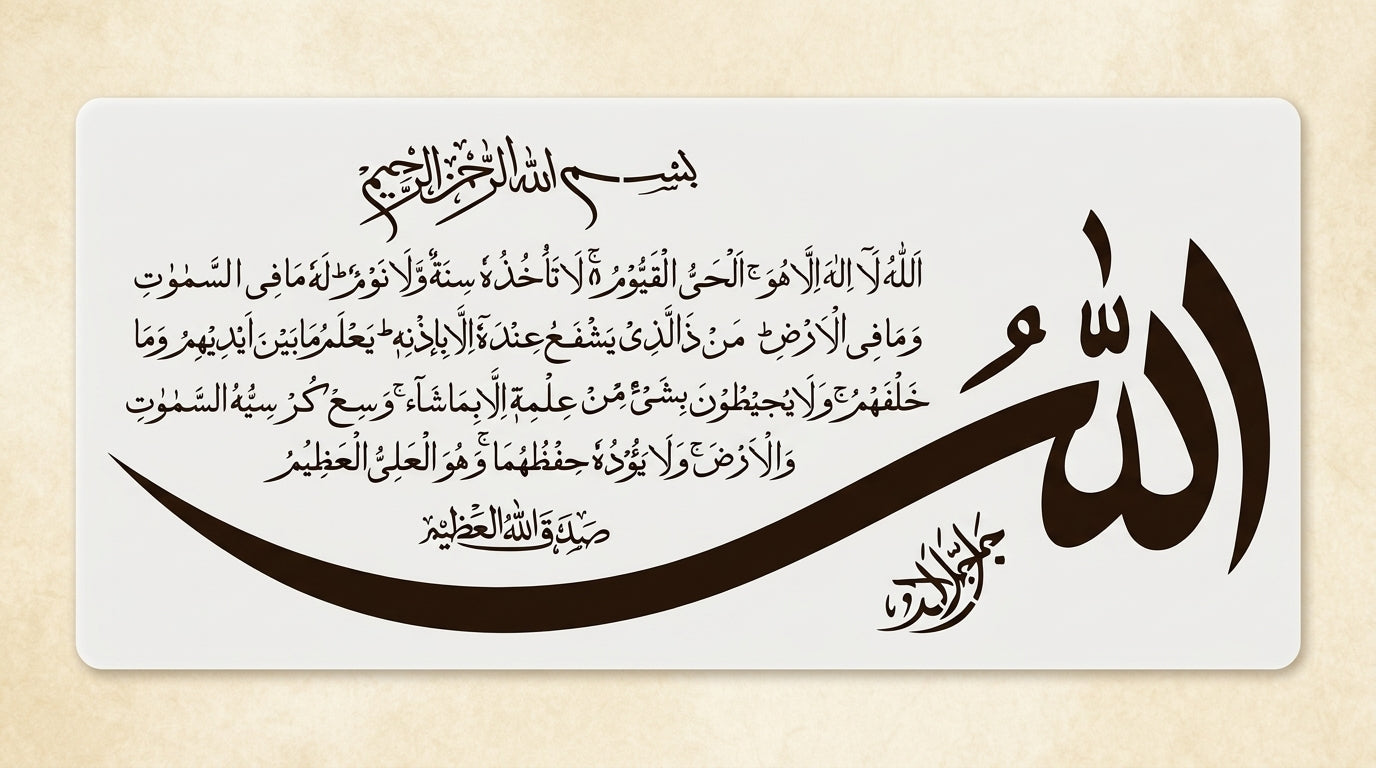 بِسْمِ اللهِ الرَّحْمٰنِ الرَّحِيْمِ
اَللّٰهُ لَآ اِلٰهَ اِلَّا هُوَ ۚ اَلْحَىُّ الْقَيُّوْمُ ۚ۬ لَا تَاْخُذُهٗ سِنَةٌ وَّلَا نَوْمٌ ؕ لَهٗ مَا فِى السَّمٰوٰتِ
وَمَا فِى الْاَرْضِ ؕ مَنْ ذَا الَّذِىْ يَشْفَعُ عِنْدَهٗٓ اِلَّا بِاِذْنِهٖ ؕ يَعْلَمُ مَا بَيْنَ اَيْدِيْهِمْ وَمَا
خَلْفَهُمْ ۚ وَلَا يُجيْطُوْنَ بِشَىْءٍ مِّنْ عِلْمِهٖٓ اِلَّا بِمَا شَآءَ ۚ وَسِعَ كُرْ سِيُّهُ السَّمٰوٰتِ
وَالْاَرْضَ ۚ وَلَا يَؤُدُهٗ حِفْظُهُمَا ۚ وَهُوَ الْعَلِىُّ الْعَظِيْمُ
صَدَقَ اللهُ الْعَظِيْمُ
اللّٰهُ